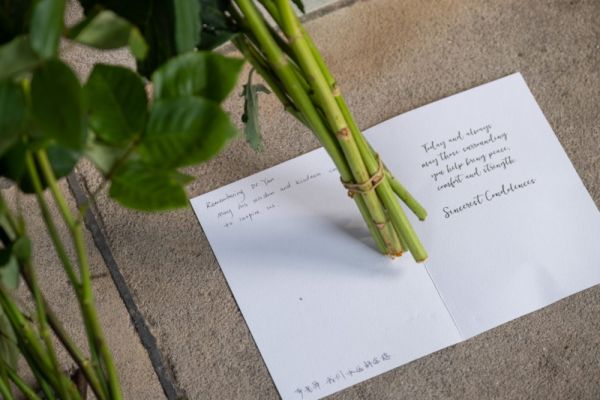 Remembering Dr Yan
May his wisdom and kindness
to inspire us
我们永远
Today and always
may those surrounding
you help bring peace,
comfort and strength.
Sincerest Condolences